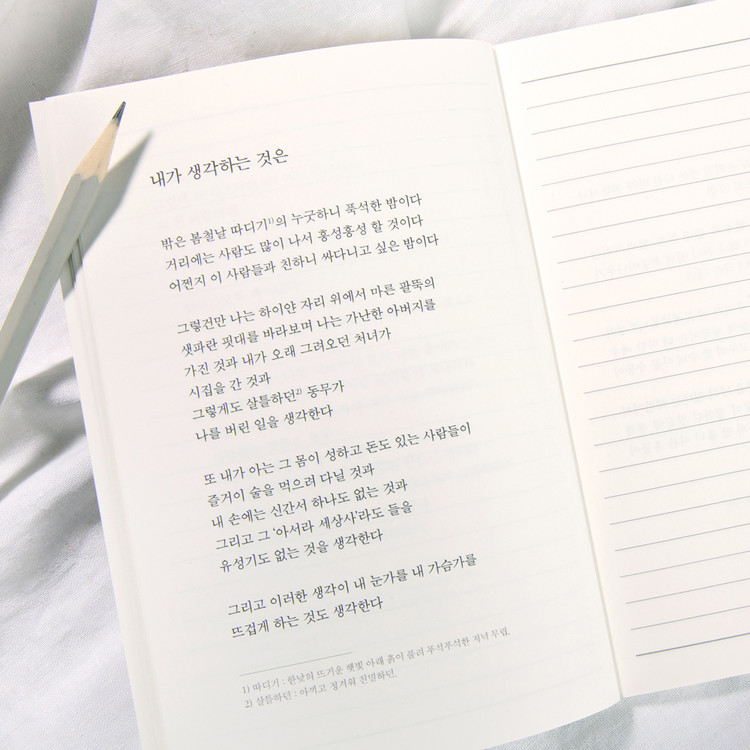 내가 생각하는 것은
밖은 봄철날 따디기1)의 누긋하니 푹석한 밤이다
거리에는 사람도 많이 나서 흥성흥성 할 것이다
어쩐지 이 사람들과 친하니 싸다니고 싶은 밤이다
그렇건만 나는 하이얀 자리 위에서 마른 팔뚝의
샛파란 핏대를 바라보며 나는 가난한 아버지를
가진 것과 내가 오래 그려오던 처녀가
시집을 간 것과
그렇게도 살틀하던2) 동무가
나를 버린 일을 생각한다
또 내가 아는 그 몸이 성하고 돈도 있는 사람들이
즐거이 술을 먹으려 다닐 것과
내 손에는 신간서 하나도 없는 것과
그리고 그 '아서라 세상사'라도 들을
유성기도 없는 것을 생각한다
그리고 이러한 생각이 내 눈가를 내 가슴가를
뜨겁게 하는 것도 생각한다
1) 따디기 : 한낮의 뜨거운 햇빛 아래 흙이 풀려 푸석푸석한 저녁 무렵.
2) 살틀하던 : 아끼고 정겨워 친밀하던.